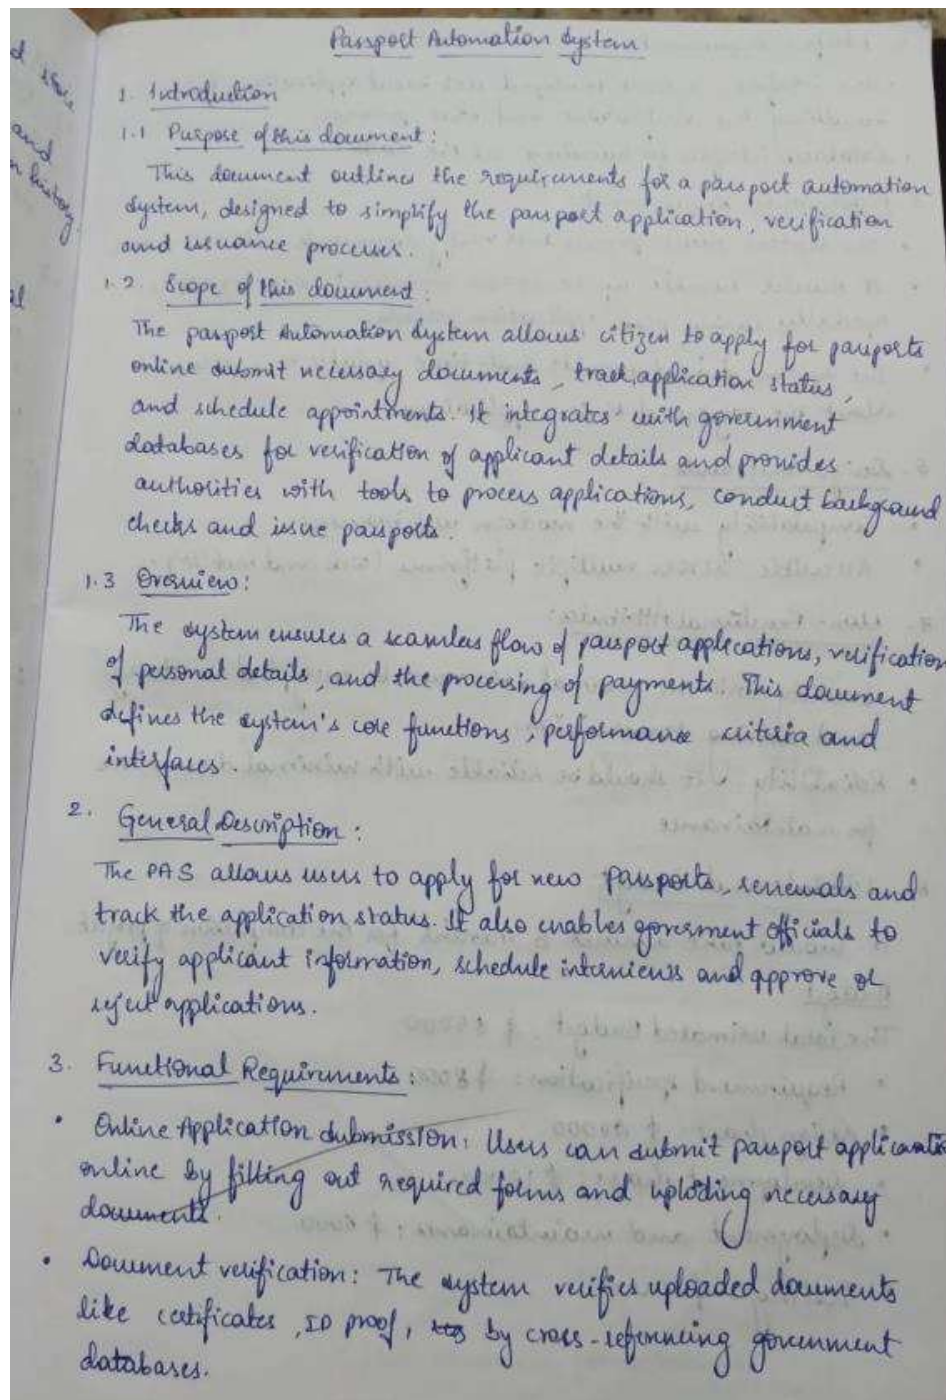 Passport Automation System
1. Introduction
1.1 Purpose of this document :
This document outlines the requirements for a passport automation
system, designed to simplify the passport application, verification
and issuance processes.
1.2 Scope of this document :
The passport Automation System allows citizen to apply for passports
online submit necessary documents, track, application status,
and schedule appointments. It integrates with government
databases for verification of applicant details and provides
authorities with tools to process applications, conduct background
checks and issue passports.
1.3 Overview :
The system ensures a seamless flow of passport applications, verification
of personal details, and the processing of payments. This document
defines the system's core functions, performance criteria and
interfaces.
2. General Description :
The PAS allows users to apply for new passports, renewals and
track the application status. It also enables goverment officials to
verify applicant information, schedule interviews and approve or
reject applications.
3. Functional Requirements :
• Online Application submission : Users can submit passport application
online by filling out required forms and uploding necessary
documents.
• Document verification : The system verifies uploaded documents
like certificates, ID proof, by cross-referencing government
databases.
and
history